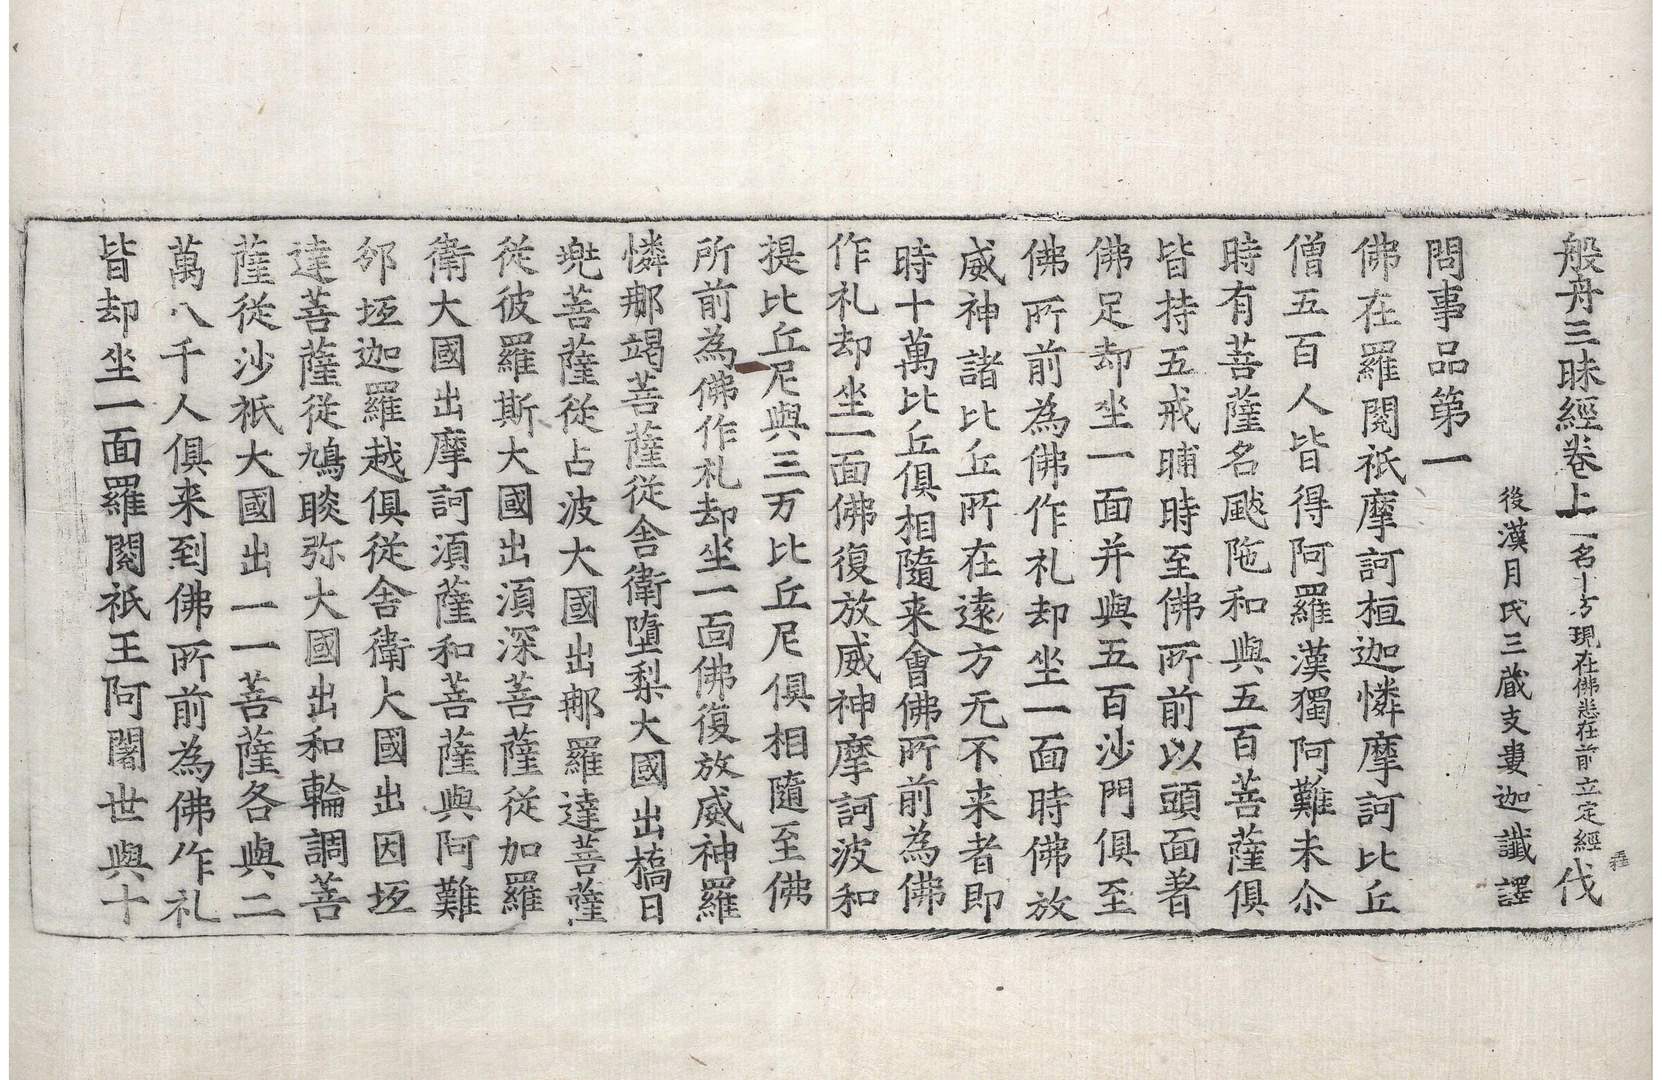 般舟三昧經卷上 一名十方現在佛悉在前立定經 伐
後漢月氏三藏支婁迦讖譯
問事品第一
佛在羅閱祇摩訶桓迦憐摩訶比丘
僧五百人皆得阿羅漢獨阿難未尒
時有菩薩名颰陁和與五百菩薩俱
皆持五戒晡時至佛所前以頭面著
佛足却坐一面并與五百沙門俱至
佛所前為佛作礼却坐一面時佛放
威神諸比丘所在遠方无不来者即
時十萬比丘俱相隨来會佛所前為佛
作礼却坐一面佛復放威神摩訶波和
提比丘尼與三万比丘尼俱相隨至佛
所前為佛作礼却坐一面佛復放威神羅
憐那竭菩薩從舍衛墮梨大國出橋日
兜菩薩從占波大國出那羅達菩薩
從彼羅斯大國出湏深菩薩從加羅
衛大國出摩訶湏薩和菩薩與阿難
邠坻迦羅越俱從舍衛大國出因坻
達菩薩從鳩睒弥大國出和輪調菩
薩從沙祇大國出一一菩薩各與二
萬八千人俱来到佛所前為佛作礼
皆却坐一面羅閱祇王阿闍世與十